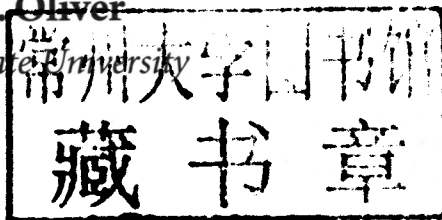 . Oliver
te University
常州大学图书馆
藏书章